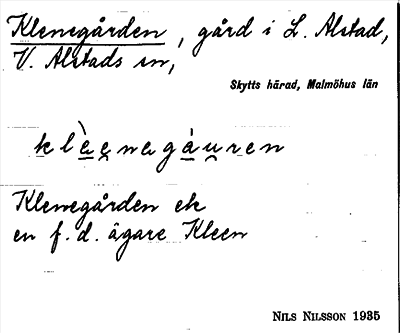 Klenegården, gård i L. Alstad,
V. Alstads sn,
Skytts härad, Malmöhus län
klèe̬negàu̬ren
Klenegården ek
en f. d. ägare Kleen
NILS NILSSON 1935